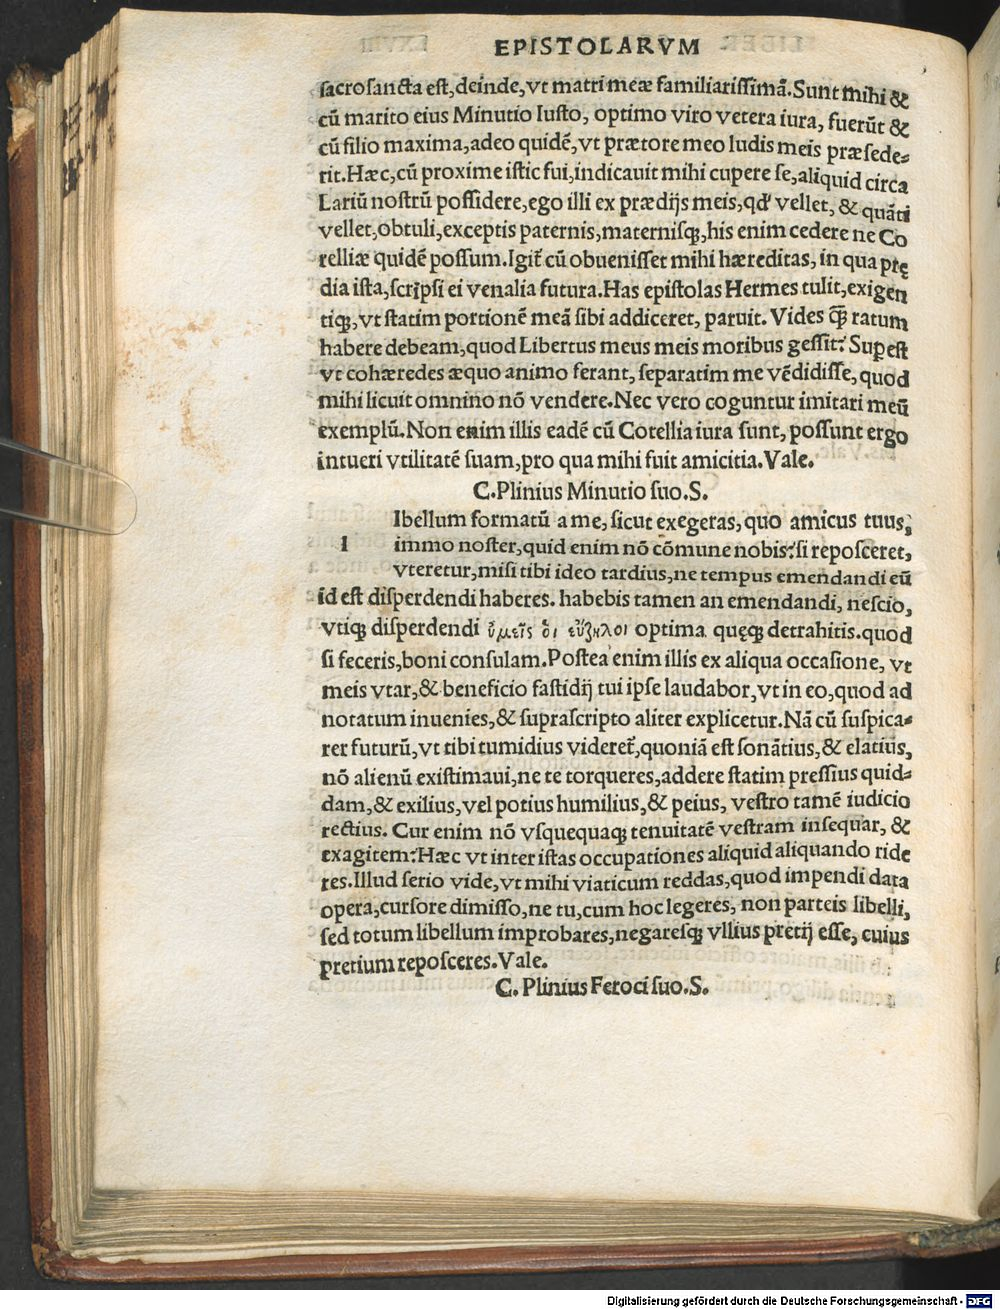 EPISTOLARVM
sacrosancta est, deinde, vt matri meæ familiarissimā. Sunt mihi &
cū marito eius Minutio Iusto, optimo viro vetera iura, fuerūt &
cū filio maxima, adeo quidē, vt prætore meo ludis meis præsede-
rit. Hæc, cū proxime istic fui, indicauit mihi cupere se, aliquid circa
Lariū nostrū possidere, ego illi ex prædijs meis, qđ vellet, & quāti
vellet, obtuli, exceptis paternis, maternisq;, his enim cedere ne Co
relliæ quidē possum. Igit̃ cū obuenisset mihi hæreditas, in qua prę
dia ista, scripsi ei venalia futura. Has epistolas Hermes tulit, exigen
tiq;, vt statim portionē meā sibi addiceret, paruit. Vides q̄ꝫ ratum
habere debeam, quod Libertus meus meis moribus gessit? Supest
vt cohæredes æquo animo ferant, separatim me vēdidisse, quod
mihi licuit omnino nō vendere. Nec vero coguntur imitari meū
exemplū. Non enim illis eadē cū Cotellia iura sunt, possunt ergo
intueri vtilitatē suam, pro qua mihi fuit amicitia. Vale.
C. Plinius Minutio suo. S.
l Ibellum formatū a me, sicut exegeras, quo amicus tuus,
immo noster, quid enim nō cōmune nobis? si reposceret,
vteretur, misi tibi ideo tardius, ne tempus emendandi eū
id est disperdendi haberes. habebis tamen an emendandi, nescio,
vtiq; disperdendi ὑμεῖς ὁι εὔζηλοι optima quęq; detrahitis. quod
si feceris, boni consulam. Postea enim illis ex aliqua occasione, vt
meis vtar, & beneficio fastidij tui ipse laudabor, vt in eo, quod ad
notatum inuenies, & suprascripto aliter explicetur. Nā cū suspica-
rer futurū, vt tibi tumidius videret̃, quoniā est sonātius, & elatius,
nō alienū existimaui, ne te torqueres, addere statim pressius quid-
dam, & exilius, vel potius humilius, & peius, vestro tamē iudicio
rectius. Cur enim nō vsquequaq; tenuitatē vestram insequar, &
exagitem? Hæc vt inter istas occupationes aliquid aliquando ride
res. Illud serio vide, vt mihi viaticum reddas, quod impendi data
opera, cursore dimisso, ne tu, cum hoc legeres, non parteis libelli,
sed totum libellum improbares, negaresq; vllius pretij esse, cuius
pretium reposceres. Vale.
C. Plinius Feroci suo. S.
Digitalisierung gefördert durch die Deutsche Forschungsgemeinschaft - DFG